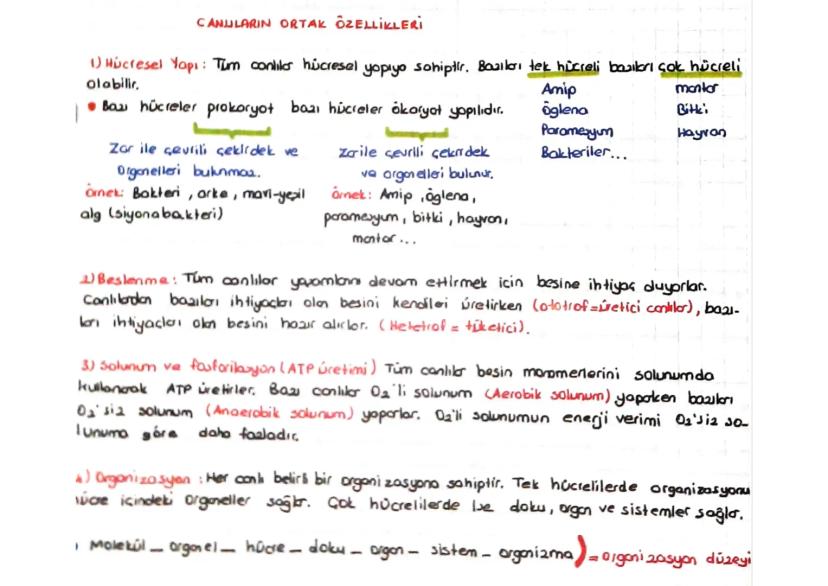 CANLILARIN ORTAK ÖZELLİKLERİ
1) Hücresel Yapı: Tüm canlılar hücresel yapıya sahiptir. Bazıları tek hücreli bazıları çok hücreli
olabilir.
Amip mantar
• Bazı hücreler prokaryot bazı hücreler ökaryot yapılıdır.
Öglena Bitki
Paramesyum Hayvan
Bakteriler...
Zar ile çevrili çekirdek ve
Organelleri bulunmaz.
örnek: Bakteri, arke, mavi-yeşil
alg (siyanobakteri)
zarile çevrili çekirdek
ve organelleri bulunur.
örnek: Amip, öglena,
paramesyum, bitki, hayvan,
mantar...
2) Beslenme: Tüm canlılar yaşamlarını devam ettirmek için besine ihtiyaç duyarlar.
Canlılardan bazıları ihtiyaçları olan besini kendileri üretirken (ototrof=üretici canlılar), bazı-
ları ihtiyaçları olan besini hazır alırlar. (Heletrof = tüketici).
3) Solunum ve fosforilasyon (ATP üretimi) Tüm canlılar besin monomerlerini solunumda
kullanarak ATP üretirler. Bazı canlılar O₂'li solunum (Aerobik solunum) yaparken bazıları
O₂'siz solunum (Anaerobik solunum) yaparlar. O₂'li solunumun enerji verimi O₂'siz so-
lunuma göre daha fazladır.
4) Organizasyon: Her canlı belirli bir organizasyona sahiptir. Tek hücrelilerde organizasyonu
hücre içindeki organeller sağlar. Çok hücrelilerde ise doku, organ ve sistemler sağlar.
Molekül _ organel _ hücre _ doku _ organ _ sistem _ organizma) = organizasyon düzeyi